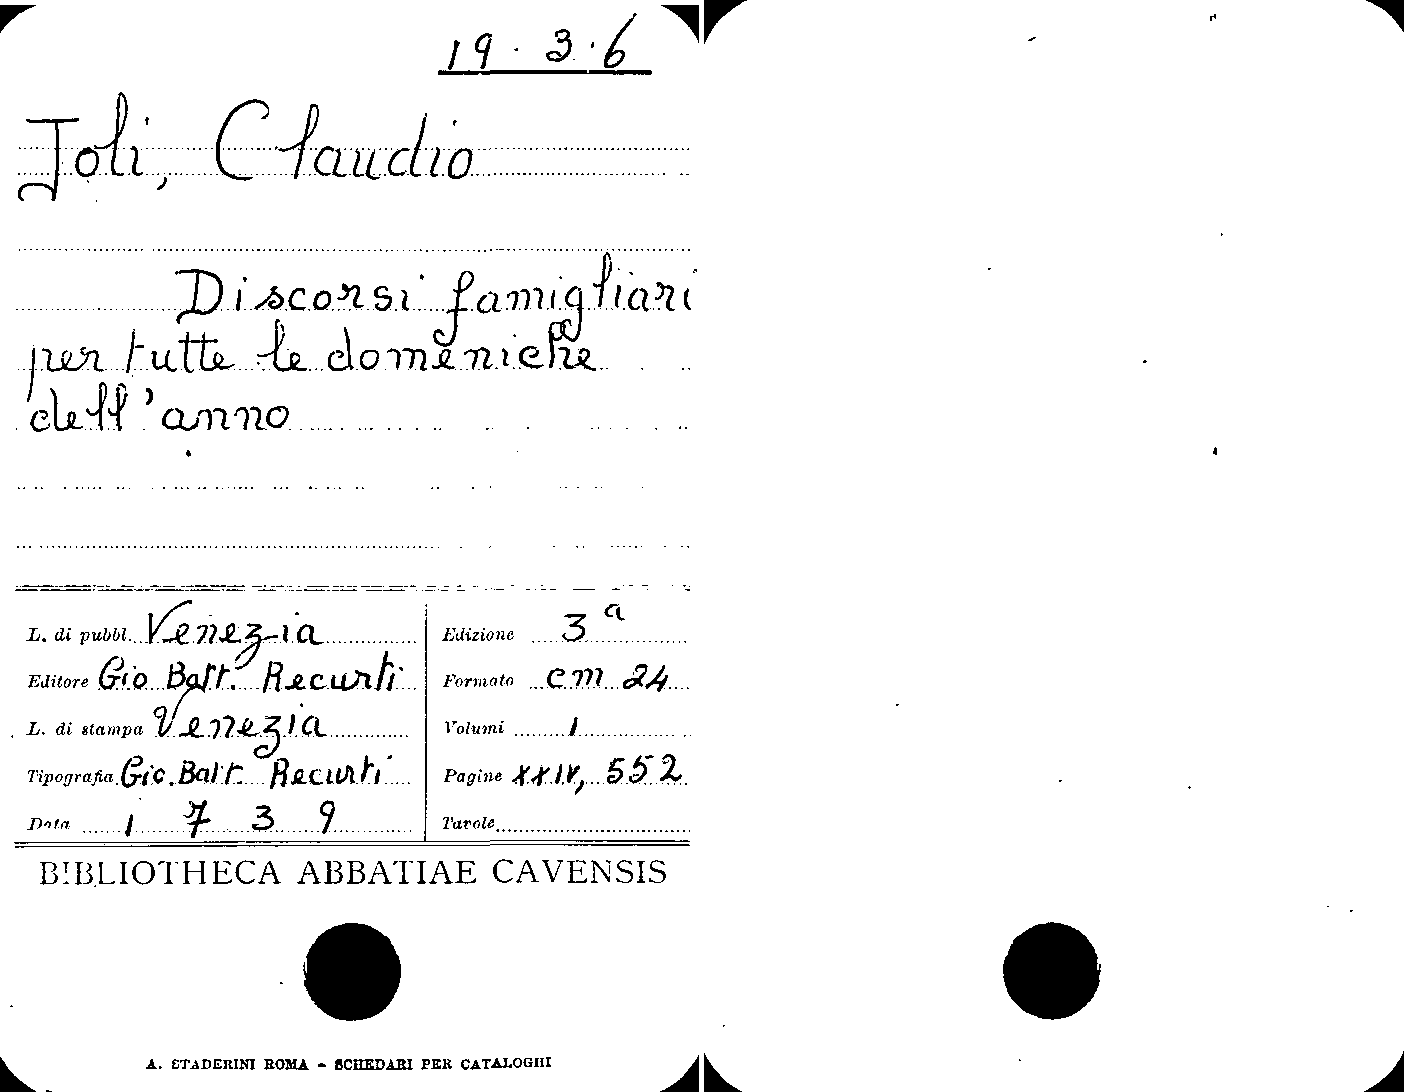 19 · 3 · 6
Joli, Claudio
Discorsi famigliari
per tutte le domeniche
dell'anno
L. di pubbl. Venezia
Editore Gio Batt. Recurti
L. di stampa Venezia
Tipografia Gio. Batt. Recurti
Data 1 7 3 9
Edizione 3ª
Formato cm 24
Volumi 1
Pagine XXIV, 552
Tavole
BIBLIOTHECA ABBATIAE CAVENSIS
A. STADERINI ROMA - SCHEDARI PER CATALOGHI